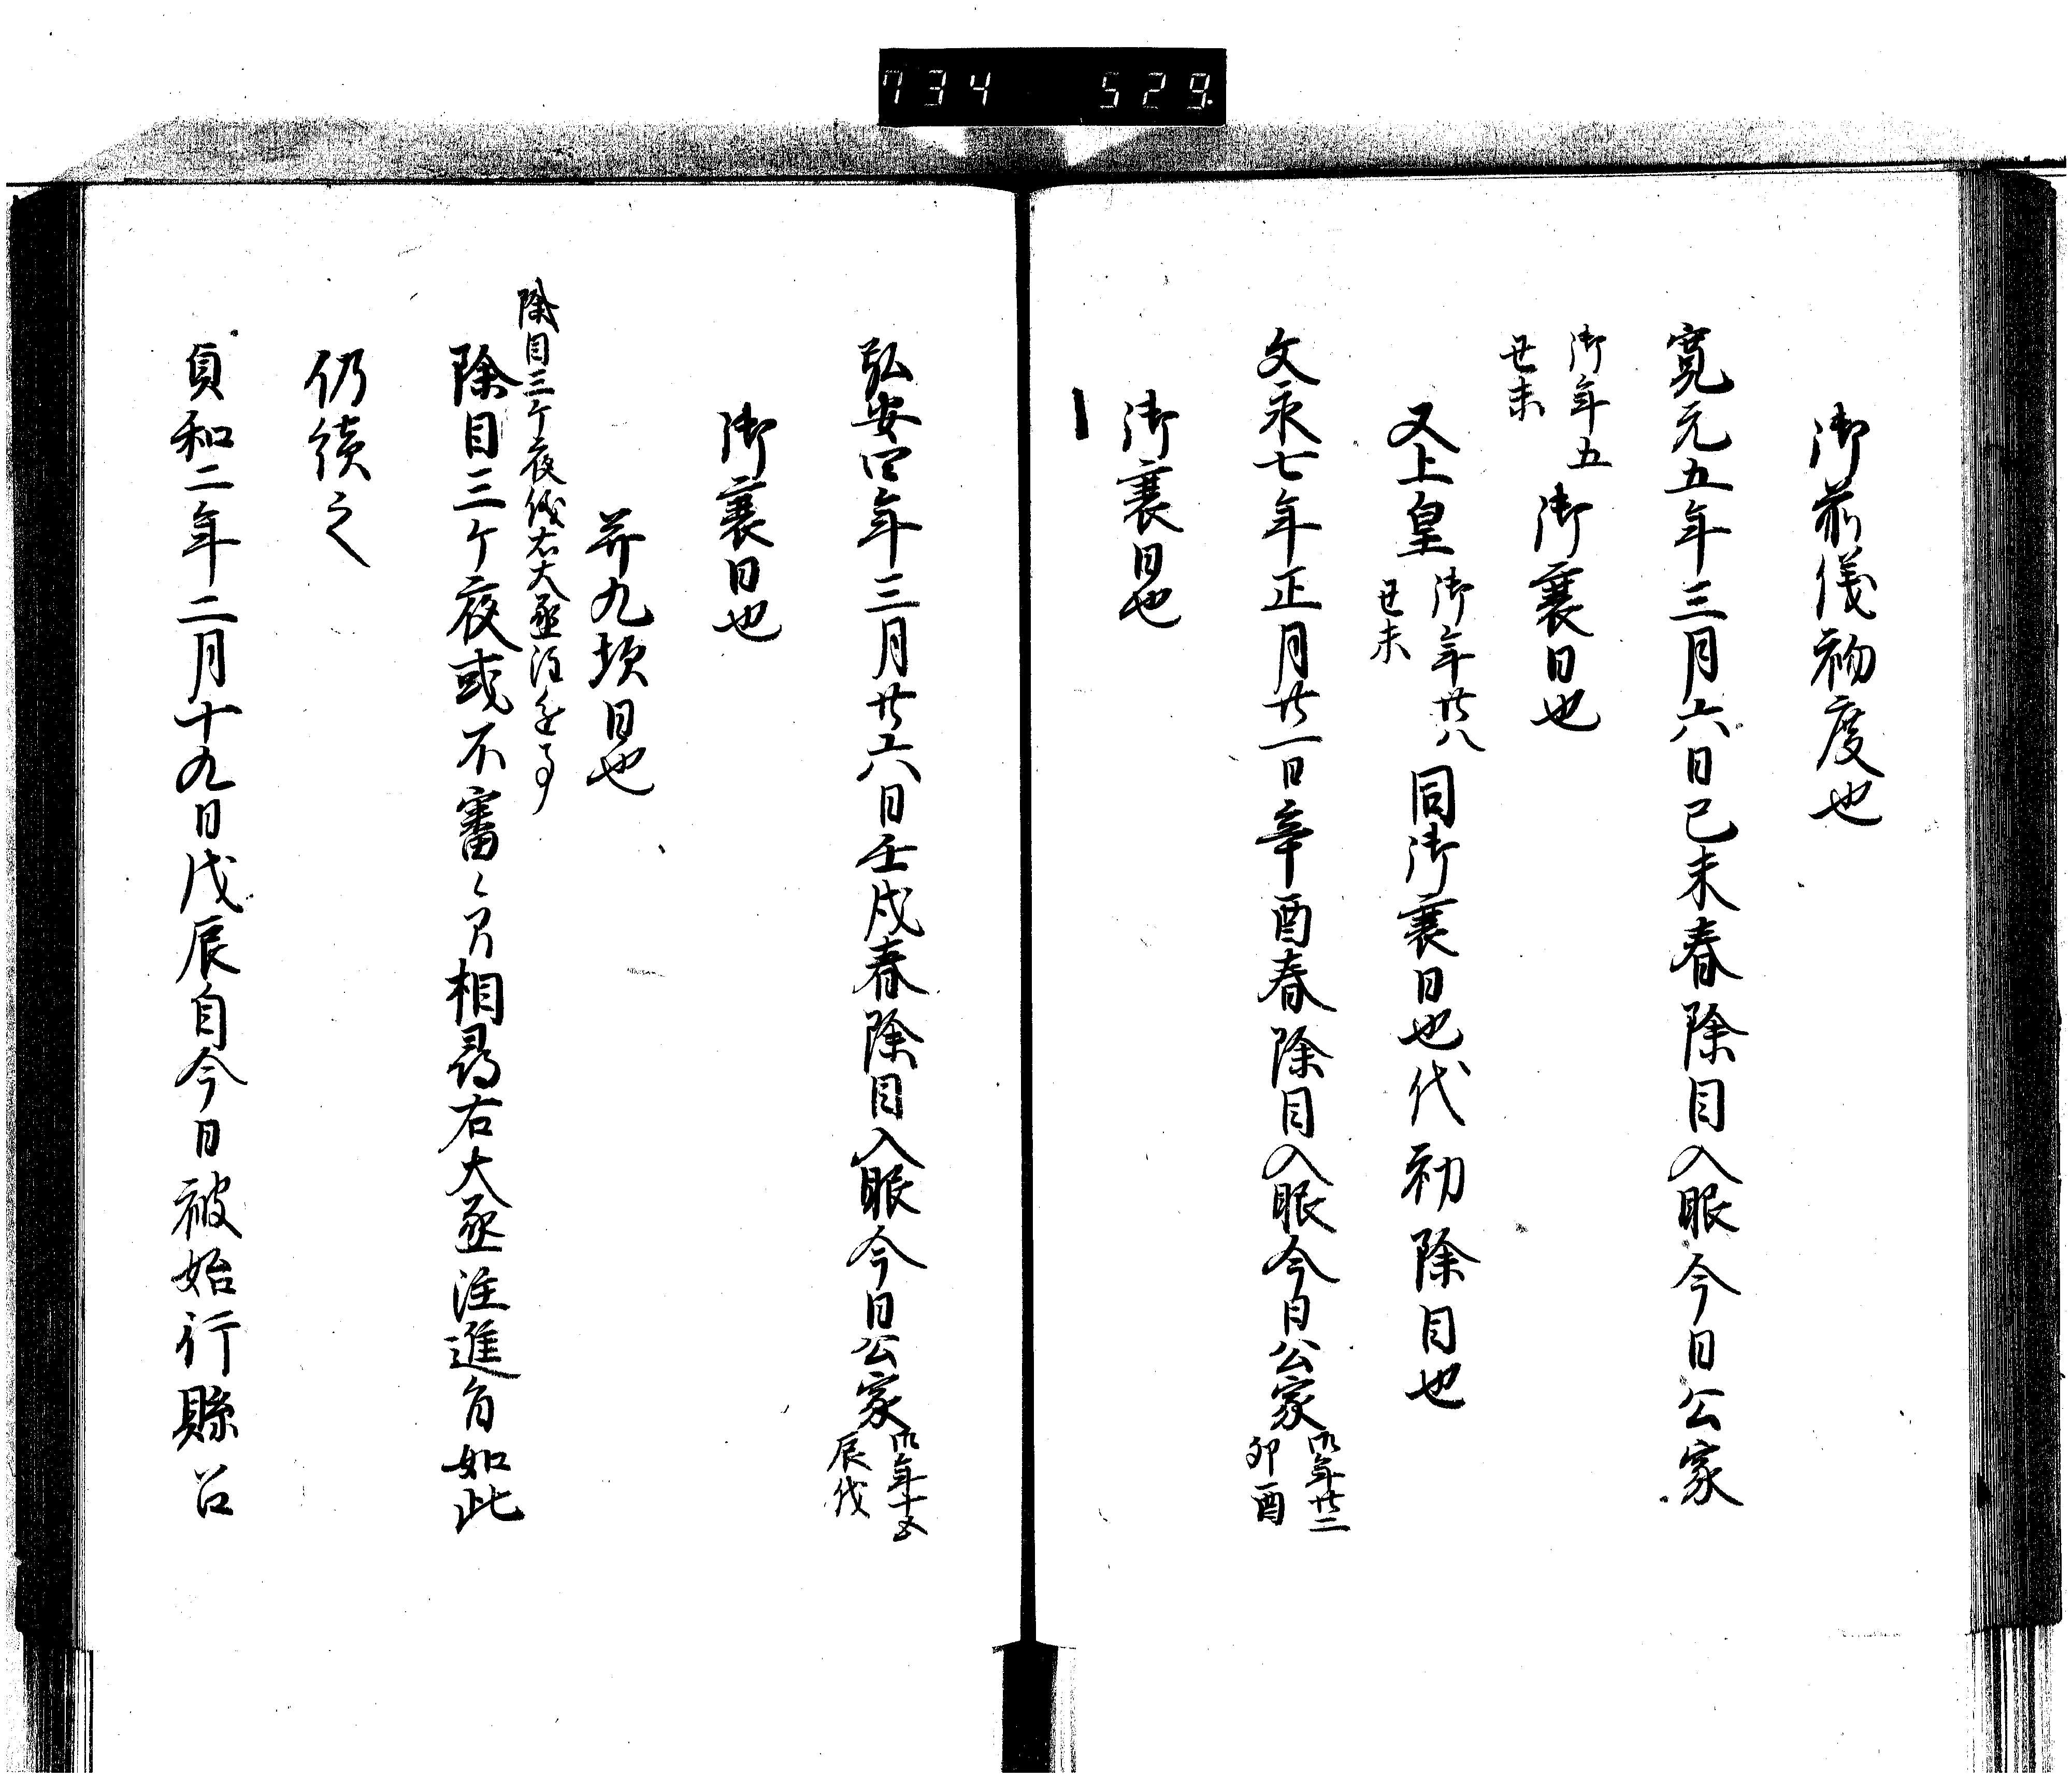 734 529
御前儀初度也
寛元五年三月六日己未春除目入眼今日公家
御年五
丑未
御衰日也
又上皇
御年廿八
丑未
同御衰日也代初除目也
文永七年正月廿一日辛酉春除目入眼今日公家
御年廿二
卯酉
御衰日也
弘安四年三月廿六日壬戌春除目入眼今日公家
御年十五
辰戌
御衰日也
并九坎日也
除目三ケ夜儀右大丞注進事
除目三ケ夜或不審之間相尋右大丞注進旨如此
仍続之
貞和二年二月十九日戊辰自今日被始行縣召